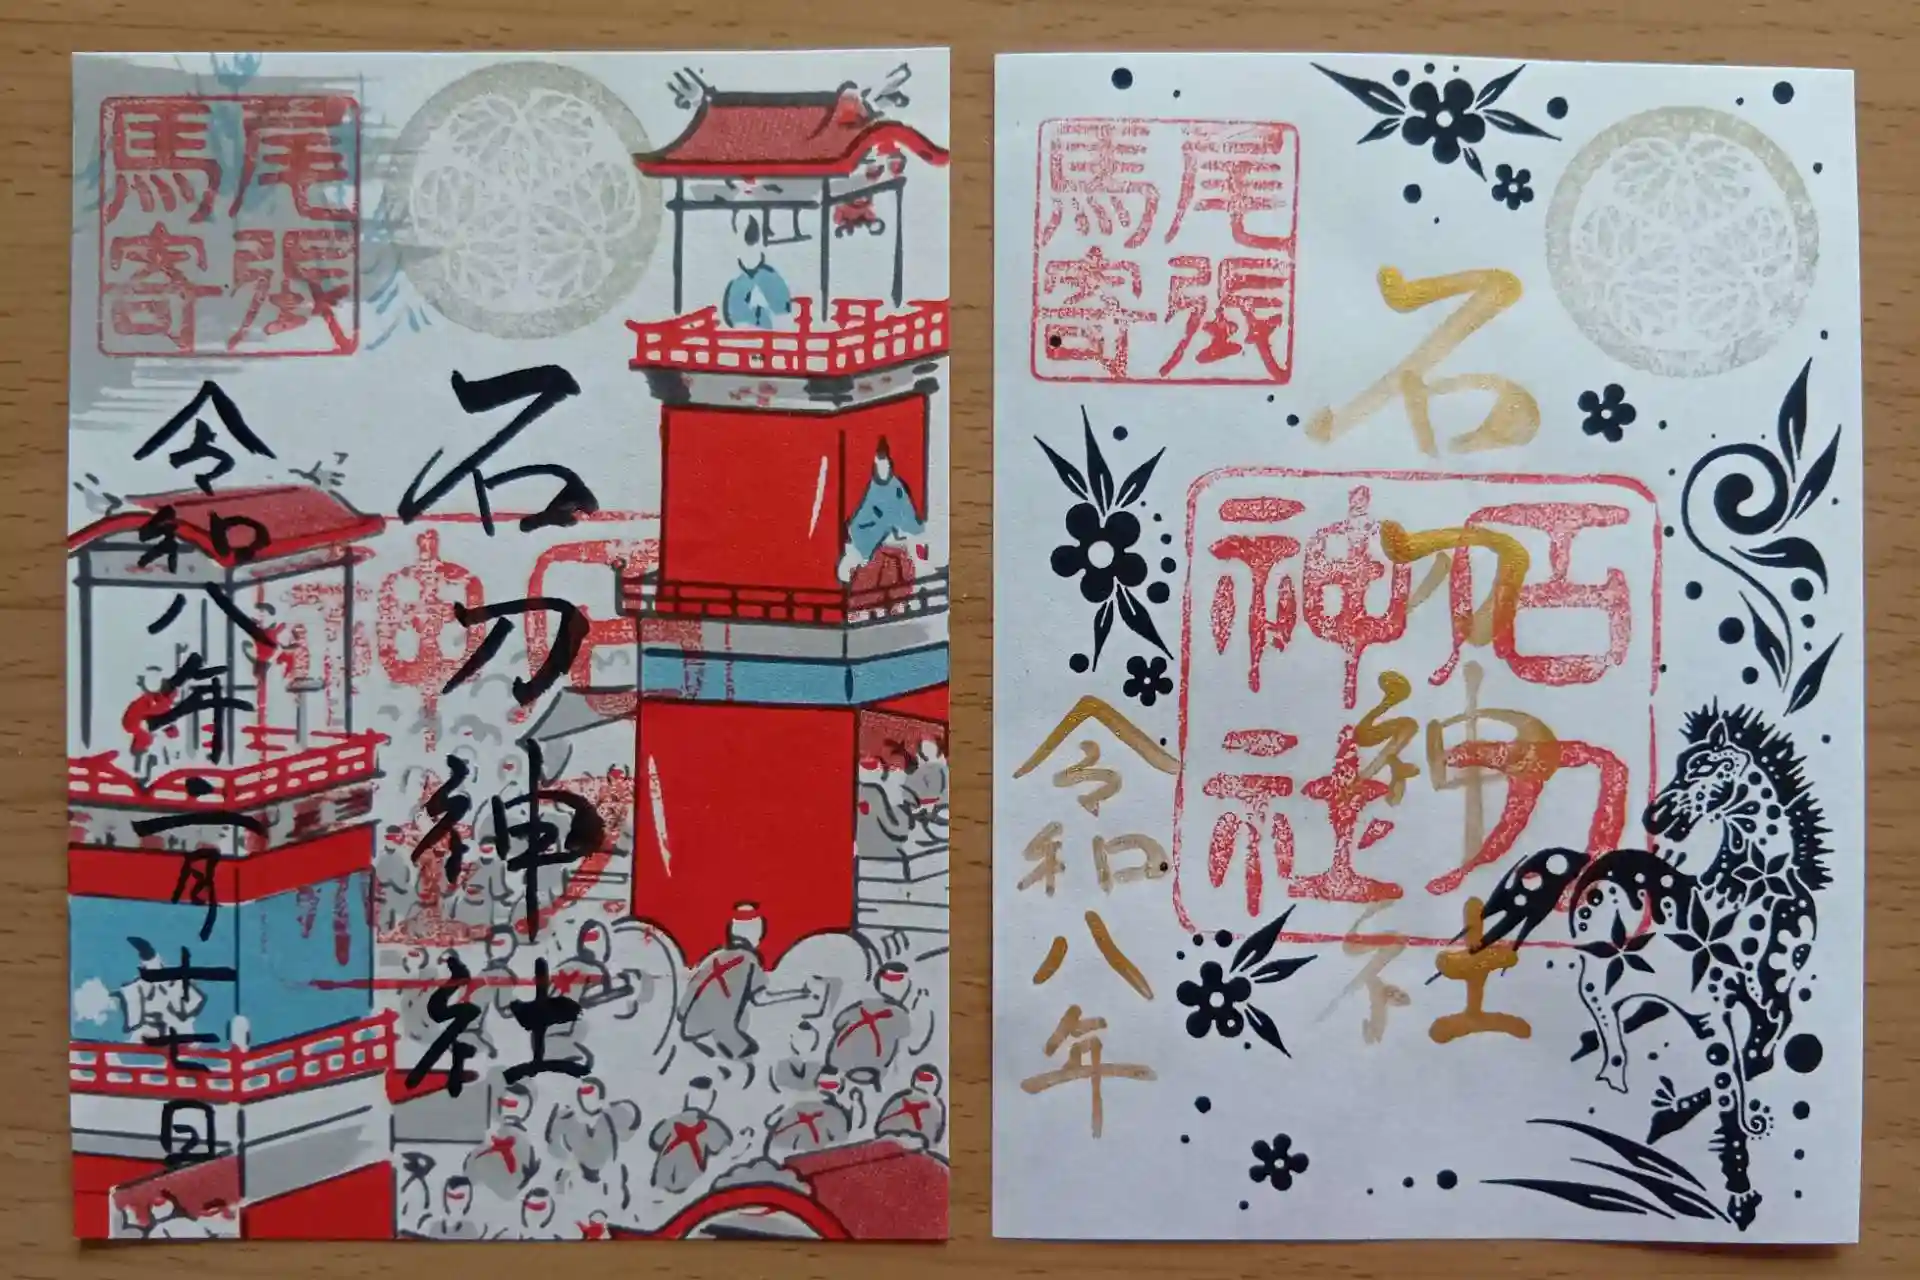 尾張
馬寄
石刀神社
令和八年二月十七日
尾張
馬寄
石刀神社
石刀
神社
令和八年